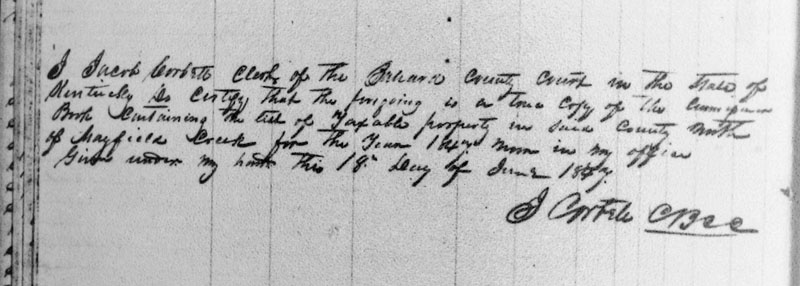 I Jacob Corbett Clerk of the Ballard County Court in the State of
Kentucky Do Certify that the forgoing is a true Copy of the Commissioners
Book Containing the list of Taxable property in said County North
of Mayfield Creek for the Year 1847 now in my office
Given under my hand this 18th Day of June 1847
J Corbett CBCC